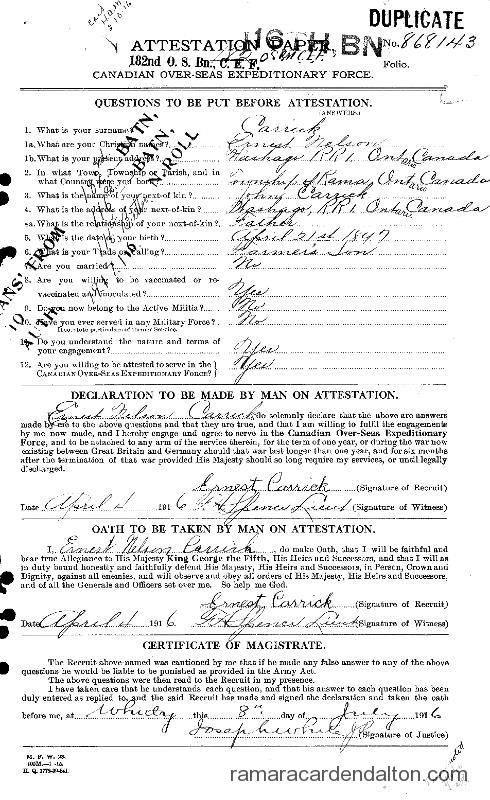 DUPLICATE
ATTESTATION PAPER.
No. 868143
182nd O. S. Bn., C. E. F.
BN
Folio.
CANADIAN OVER-SEAS EXPEDITIONARY FORCE.
QUESTIONS TO BE PUT BEFORE ATTESTATION.
(ANSWERS)
1. What is your surname? Carrick
1a. What are your Christian names? Ernest Nelson
1b. What is your present address? Washago RR1 Ontario Canada
2. In what Town, Township or Parish, and in
what Country were you born? Township of Rama, Ontario Canada
3. What is the name of your next-of-kin? John Carrick
4. What is the address of your next-of-kin? Washago, RR1, Ontario Canada
4a. What is the relationship of your next-of-kin? Father
5. What is the date of your birth? April 21st 1897
6. What is your Trade or Calling? Farmer's Son
7. Are you married? No
8. Are you willing to be vaccinated or re-
vaccinated and inoculated? Yes
9. Do you now belong to the Active Militia? No
10. Have you ever served in any Military Force? No
If so, state particulars of former Service.
11. Do you understand the nature and terms of
your engagement? Yes
12. Are you willing to be attested to serve in the
CANADIAN OVER-SEAS EXPEDITIONARY FORCE? Yes
DECLARATION TO BE MADE BY MAN ON ATTESTATION.
I, Ernest Nelson Carrick, do solemnly declare that the above are answers
made by me to the above questions and that they are true, and that I am willing to fulfil the engagements
by me now made, and I hereby engage and agree to serve in the Canadian Over-Seas Expeditionary
Force, and to be attached to any arm of the service therein, for the term of one year, or during the war now
existing between Great Britain and Germany should that war last longer than one year, and for six months
after the termination of that war provided His Majesty should so long require my services, or until legally
discharged.
Ernest Carrick (Signature of Recruit)
Date April 4 1916 Spence Lieut (Signature of Witness)
OATH TO BE TAKEN BY MAN ON ATTESTATION.
I, Ernest Nelson Carrick, do make Oath, that I will be faithful and
bear true Allegiance to His Majesty King George the Fifth, His Heirs and Successors, and that I will as
in duty bound honestly and faithfully defend His Majesty, His Heirs and Successors, in Person, Crown and
Dignity, against all enemies, and will observe and obey all orders of His Majesty, His Heirs and Successors,
and of all the Generals and Officers set over me. So help me God.
Ernest Carrick (Signature of Recruit)
Date April 4 1916 Spence Lieut (Signature of Witness)
CERTIFICATE OF MAGISTRATE.
The Recruit above-named was cautioned by me that if he made any false answer to any of the above
questions he would be liable to be punished as provided in the Army Act.
The above questions were then read to the Recruit in my presence.
I have taken care that he understands each question, and that his answer to each question has
been duly entered as replied to, and the said Recruit has made and signed the declaration and taken the oath
before me, at Whitby this 8th day of July 1916
Joseph White JP (Signature of Justice)
M. F. W. 23.
H. Q. 1772-39-841.
ramaracardendalton.com